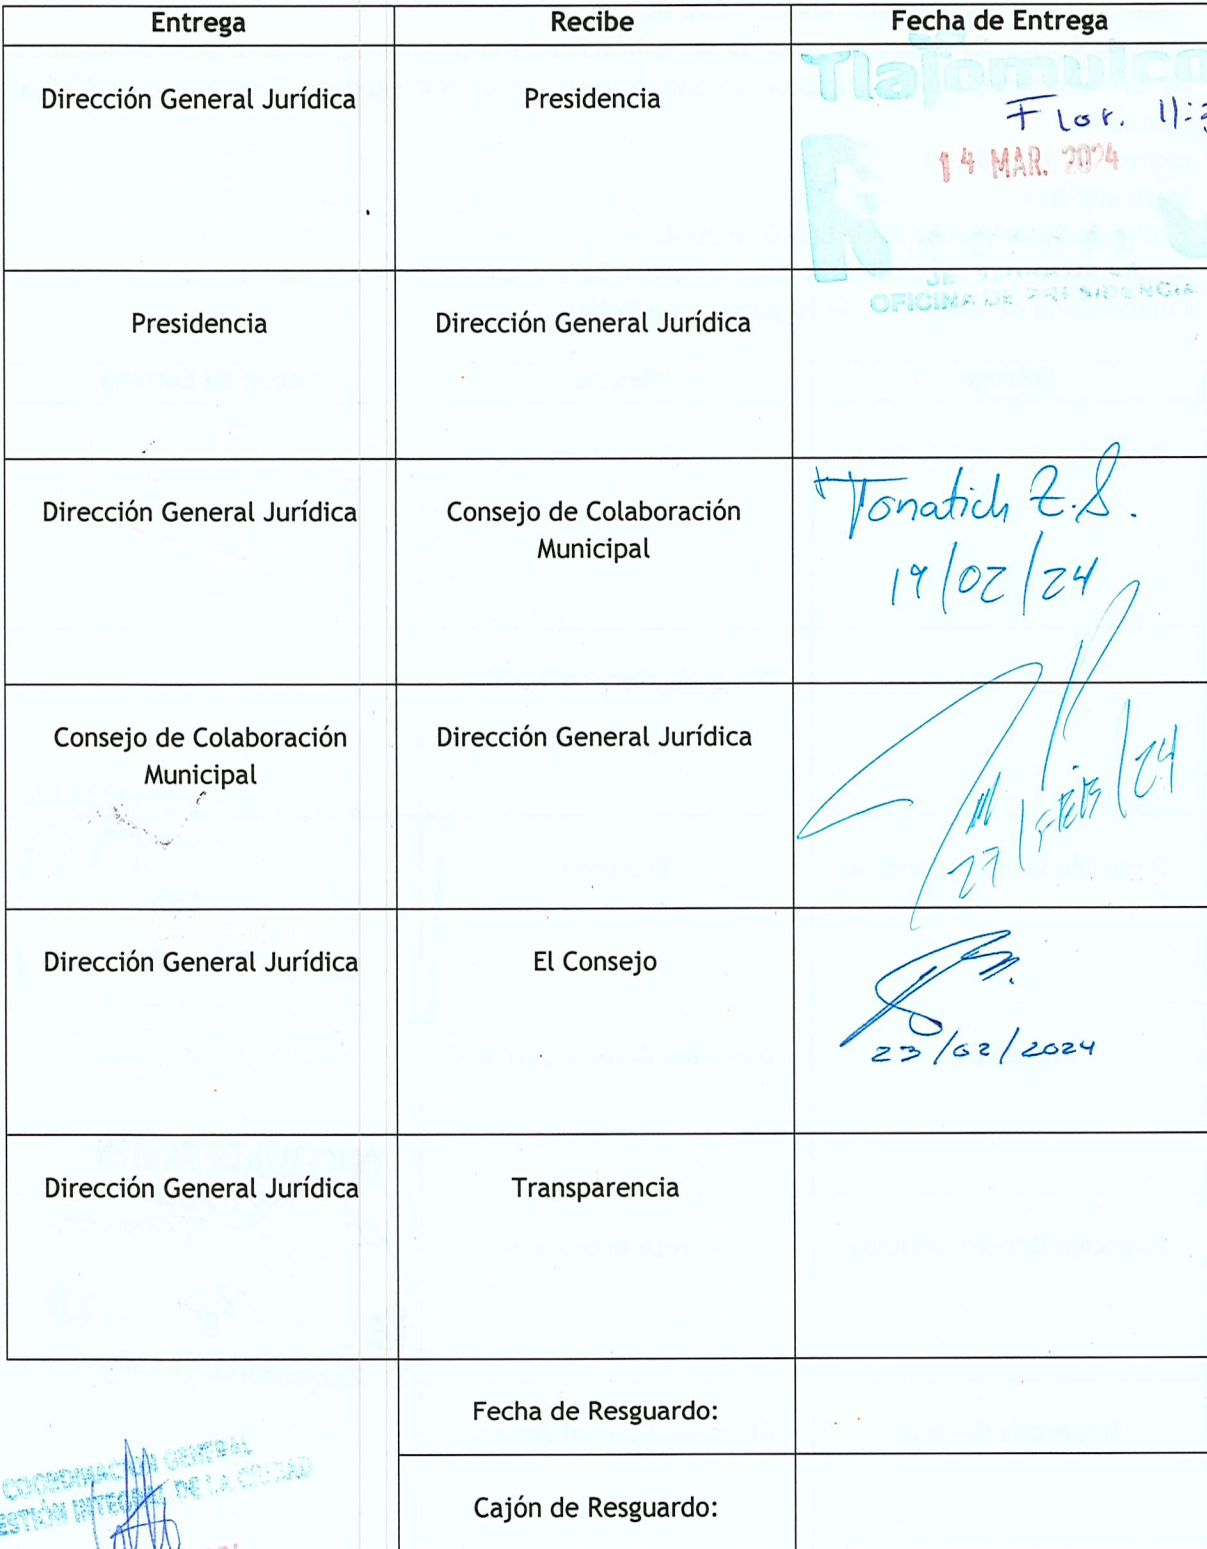 Entrega Recibe Fecha de Entrega
Dirección General Jurídica Presidencia
Tlajomulco
Flor. 11:3
14 MAR. 2024
OFICINA DE PRESIDENCIA
Presidencia Dirección General Jurídica
Dirección General Jurídica Consejo de Colaboración
Municipal
Tonatich Z.S.
19/02/24
Consejo de Colaboración Dirección General Jurídica
Municipal
27/FEB/24
Dirección General Jurídica El Consejo
23/02/2024
Dirección General Jurídica Transparencia
Fecha de Resguardo:
COORDINACIÓN GENERAL
ESTIÓN INTEGRAL DE LA CIUDAD
Cajón de Resguardo: